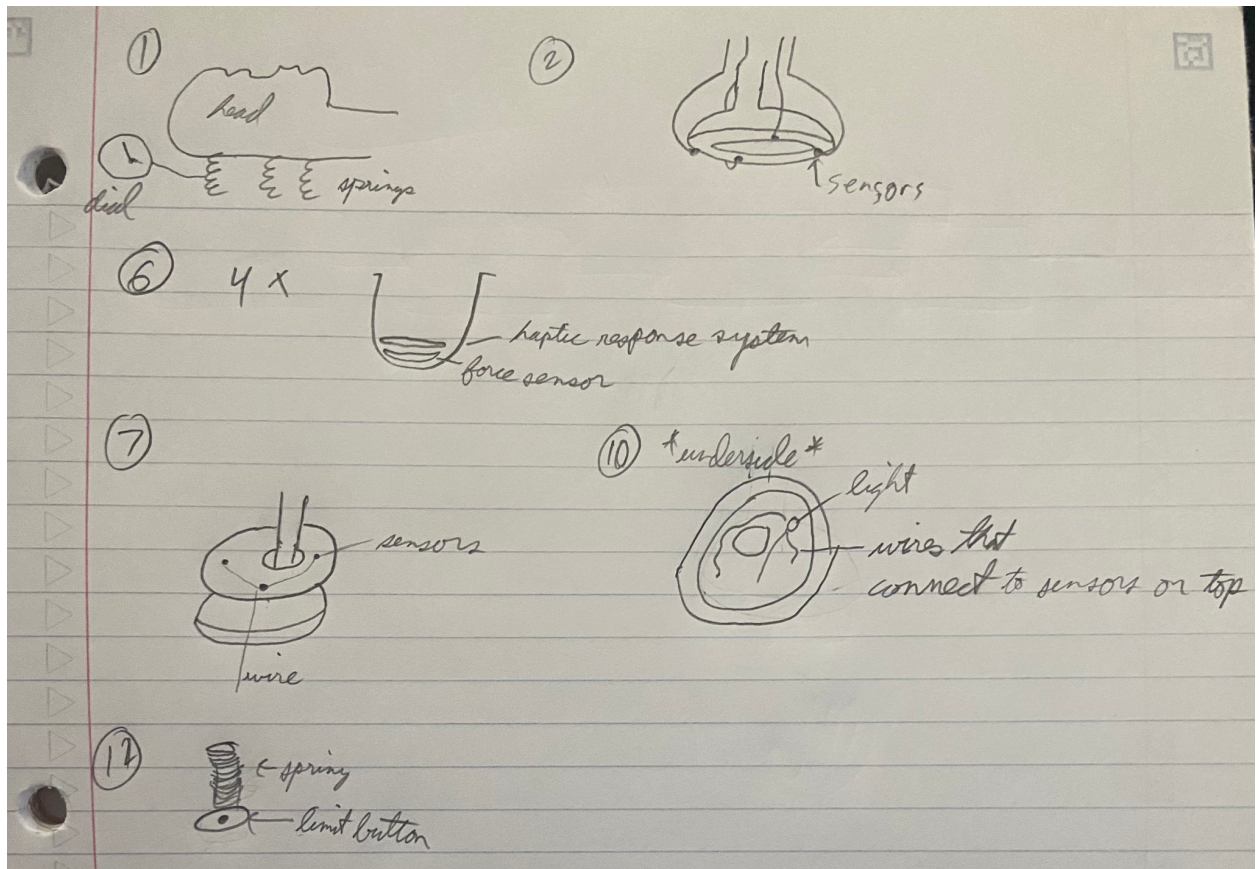 1
2
head
dial
springs
sensors
6
4 x
haptic response system
force sensor
7
sensors
wire
10
*underside*
light
wires that
connect to sensors on top
12
spring
limit button